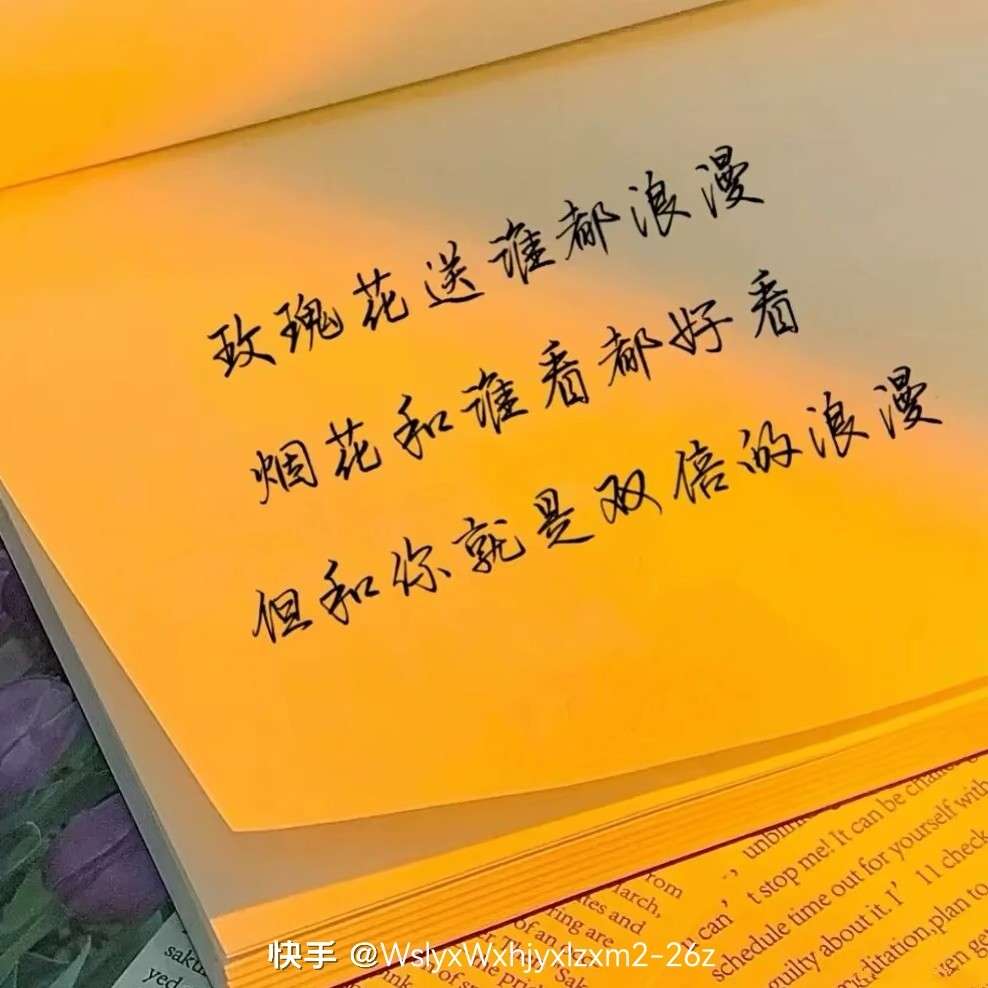 玫瑰花送谁都浪漫
烟花和谁看都好看
但和你就是双倍的浪漫
unbli
can't stop me! It can be chan
schedule time out for yourself with
guilty about it. I'll check
ditation,plan to
en ge
rom
arch,
tes and
ring are
of an
saku
yed
ink.
快手 @WslyxWxhjyxlzxm2-26z